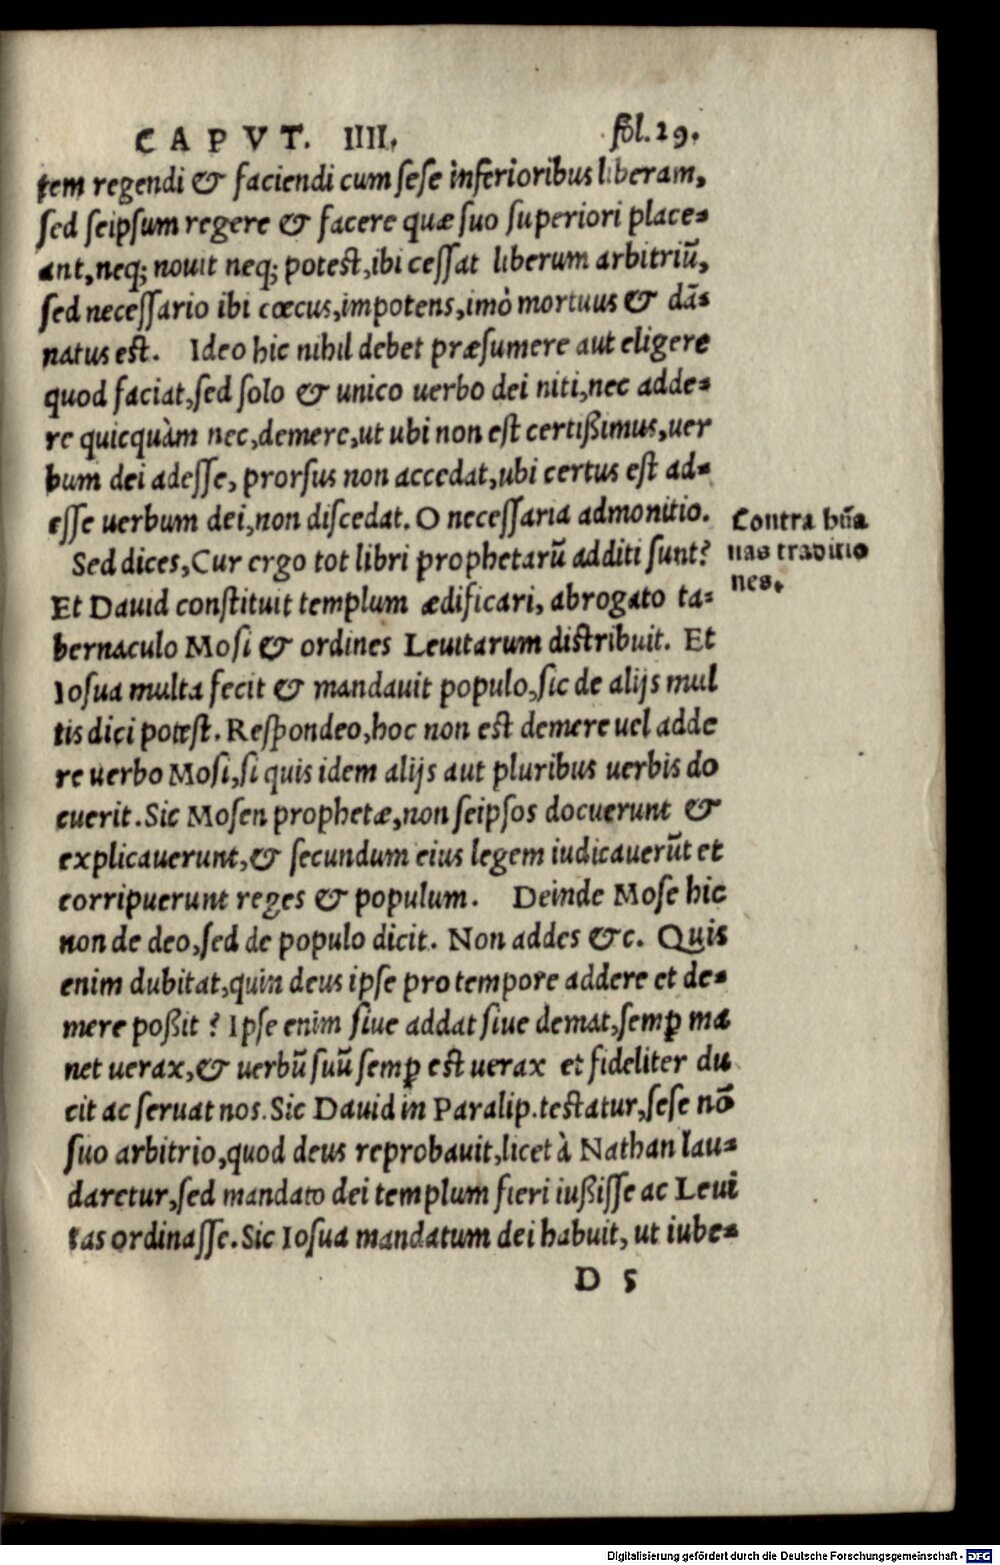 CAPVT. IIII. fol. 29.
tem regendi & faciendi cum ſeſe inferioribus liberam,
ſed ſeipſum regere & facere quæ ſuo ſuperiori place⸗
ant, neq; nouit neq; poteſt, ibi ceſſat liberum arbitriũ,
ſed neceſſario ibi cœcus, impotens, imò mortuus & dã⸗
natus eſt. Ideo hic nihil debet præſumere aut eligere
quod faciat, ſed ſolo & unico uerbo dei niti, nec adde⸗
re quicquàm nec, demere, ut ubi non eſt certißimus, uer
bum dei adeſſe, prorſus non accedat, ubi certus eſt ad⸗
eſſe uerbum dei, non diſcedat. O neceſſaria admonitio.
Contra hũa
nas traditio
nes.
Sed dices, Cur ergo tot libri prophetarũ additi ſunt?
Et Dauid conſtituit templum ædificari, abrogato ta⸗
bernaculo Moſi & ordines Leuitarum diſtribuit. Et
Ioſua multa fecit & mandauit populo, ſic de alijs mul
tis dici poteſt. Reſpondeo, hoc non eſt demere uel adde
re uerbo Moſi, ſi quis idem alijs aut pluribus uerbis do
cuerit. Sic Moſen prophetæ, non ſeipſos docuerunt &
explicauerunt, & ſecundum eius legem iudicauerũt et
corripuerunt reges & populum. Deinde Moſe hic
non de deo, ſed de populo dicit. Non addes &c. Quis
enim dubitat, quin deus ipſe pro tempore addere et de⸗
mere poßit? Ipſe enim ſiue addat ſiue demat, ſemꝑ ma
net uerax, & uerbũ ſuũ ſemꝑ eſt uerax et fideliter du
cit ac ſeruat nos. Sic Dauid in Paralip. teſtatur, ſeſe nõ
ſuo arbitrio, quod deus reprobauit, licet à Nathan lau⸗
daretur, ſed mandato dei templum fieri iußiſſe ac Leui
tas ordinaſſe. Sic Ioſua mandatum dei habuit, ut iube⸗
D 5
Digitalisierung gefördert durch die Deutsche Forschungsgemeinschaft - DFG